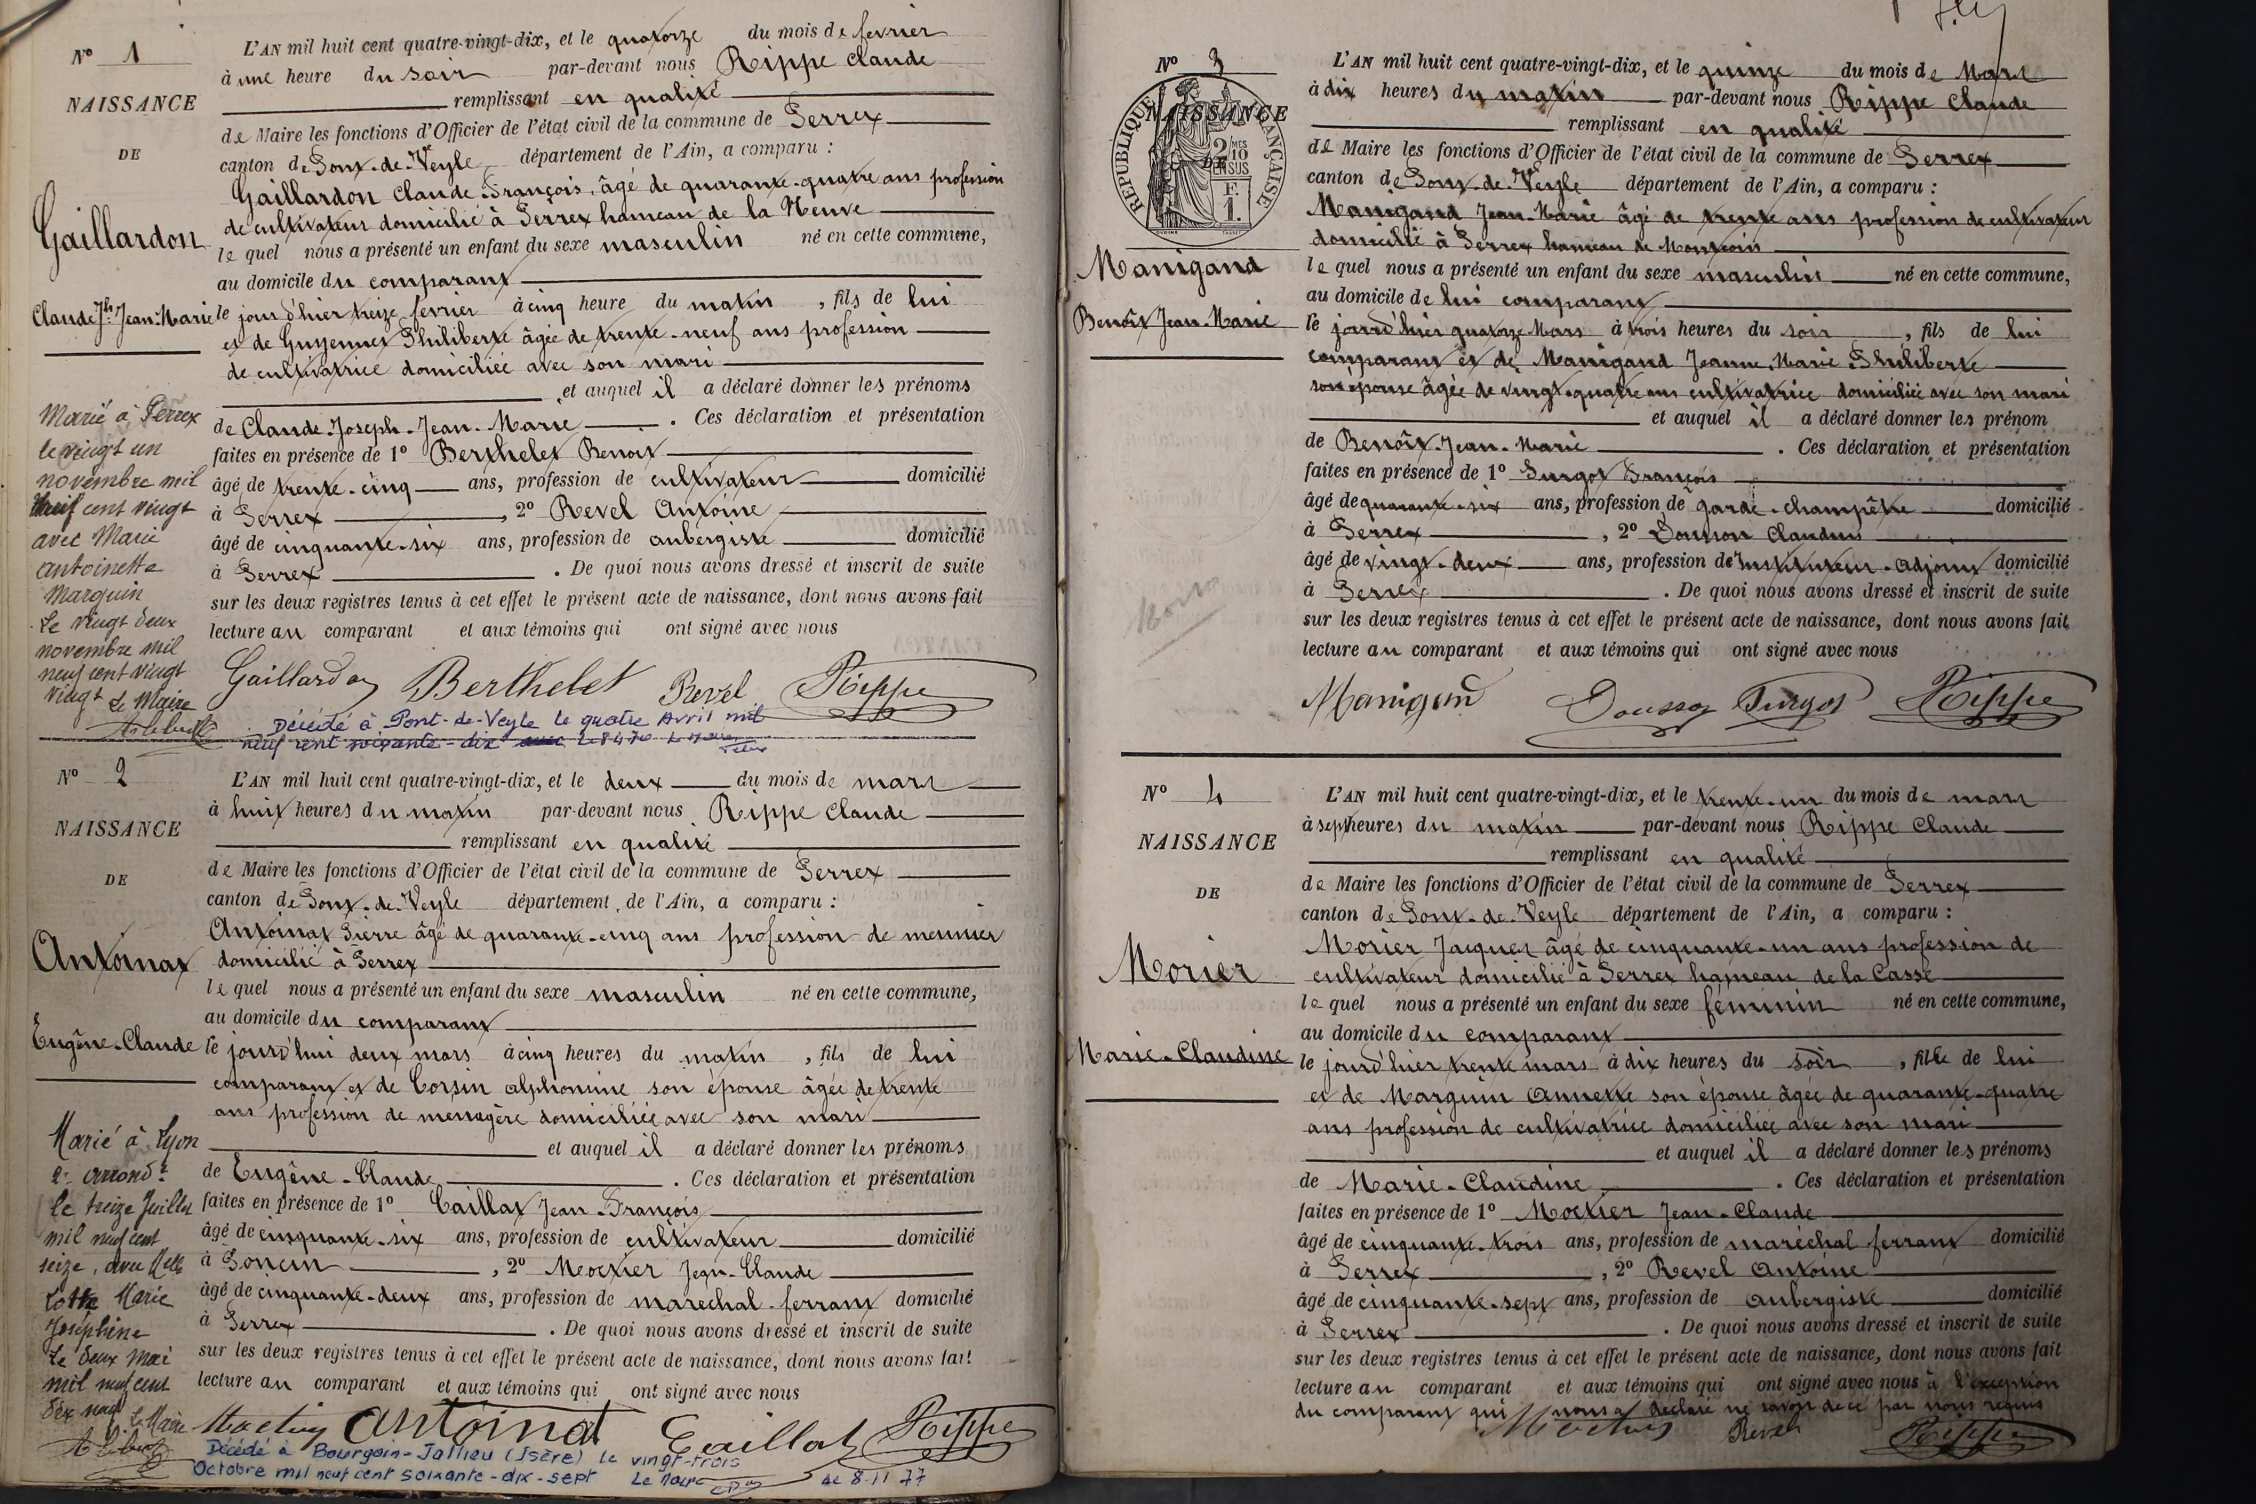 N° 1
NAISSANCE
DE
Gaillardon
Claude Jh Jean-Marie
Marié à Perrex
le vingt un
novembre mil
neuf cent vingt
avec Marie
antoinette
Marguin
Le vingt deux
novembre mil
neuf cent vingt
vingt Le Maire
L'AN mil huit cent quatre-vingt-dix, et le quatorze du mois de fevrier
à une heure du soir par-devant nous Rippe Claude
remplissant en qualité
de Maire les fonctions d'Officier de l'état civil de la commune de Perrex
canton de Pont-de-Veyle département de l'Ain, a comparu :
Gaillardon Claude-François, âgé de quarante-quatre ans profession
de cultivateur domicilié à Perrex hameau de la Neuve
le quel nous a présenté un enfant du sexe masculin né en cette commune,
au domicile du comparant
le jour d'hier treize fevrier à cinq heure du matin, fils de lui
et de Guyennet Philiberte âgée de trente-neuf ans profession
de cultivatrice domiciliée avec son mari
et auquel il a déclaré donner les prénoms
de Claude-Joseph-Jean-Marie. Ces déclaration et présentation
faites en présence de 1° Berthelet Benoit
âgé de trente-cinq ans, profession de cultivateur domicilié
à Perrex, 2° Revel Antoine
âgé de cinquante-six ans, profession de aubergiste domicilié
à Perrex. De quoi nous avons dressé et inscrit de suite
sur les deux registres tenus à cet effet le présent acte de naissance, dont nous avons fait
lecture au comparant et aux témoins qui ont signé avec nous
Gaillardon Berthelet Revel Rippe
Décédé à Pont-de-Veyle le quatre Avril mil
neuf cent soixante-dix Le 8 4 70 Le Maire
N° 2
NAISSANCE
DE
Antoinat
Eugène-Claude
Marié à Lyon
2e arrondt
le treize Juillet
mil neuf cent
seize, avec Melle
Lotte Marie
Joséphine
Le deux Mai
mil neuf cent
dix neuf
Le Maire
L'AN mil huit cent quatre-vingt-dix, et le deux du mois de mars
à huit heures du matin par-devant nous Rippe Claude
remplissant en qualité
de Maire les fonctions d'Officier de l'état civil de la commune de Perrex
canton de Pont-de-Veyle département de l'Ain, a comparu :
Antoinat Pierre âgé de quarante-cinq ans profession de meunier
domicilié à Perrex
le quel nous a présenté un enfant du sexe masculin né en cette commune,
au domicile du comparant
le jourd'hui deux mars à cinq heures du matin, fils de lui
comparant et de Corsin alphonsine son épouse âgée de trente
ans profession de menagère domiciliée avec son mari
et auquel il a déclaré donner les prénoms
de Eugêne-Claude. Ces déclaration et présentation
faites en présence de 1° Caillat Jean-François
âgé de cinquante-six ans, profession de cultivateur domicilié
à Poncin, 2° Moctier Jean-Claude
âgé de cinquante-deux ans, profession de marechal-ferrant domicilié
à Perrex. De quoi nous avons dressé et inscrit de suite
sur les deux registres tenus à cet effet le présent acte de naissance, dont nous avons fait
lecture au comparant et aux témoins qui ont signé avec nous
Antoinat Caillat Rippe
Décédé à Bourgoin-Jallieu (Isère) le vingt-trois
Octobre mil neuf cent soixante-dix-sept Le Maire Le 8-11 77
N° 3
NAISSANCE
DE
RÉPUBLIQUE FRANÇAISE
2 MES
10
EN SUS
F.
1.
Manigand
Benoît Jean-Marie
L'AN mil huit cent quatre-vingt-dix, et le quinze du mois de Mars
à dix heures du matin par-devant nous Rippe Claude
remplissant en qualité
de Maire les fonctions d'Officier de l'état civil de la commune de Perrex
canton de Pont-de-Veyle département de l'Ain, a comparu :
Manigand Jean-Marie âgé de trente ans profession de cultivateur
domicilié à Perrex hameau de Montcoin
le quel nous a présenté un enfant du sexe masculin né en cette commune,
au domicile de lui comparant
le jourd'hier quatorze Mars à trois heures du soir, fils de lui
comparant et de Manigand Jeanne Marie Philiberte
son épouse âgée de vingt-quatre ans cultivatrice domiciliée avec son mari
et auquel il a déclaré donner les prénom
de Benoît-Jean-Marie. Ces déclaration et présentation
faites en présence de 1° Purgot François
âgé de quarante-six ans, profession de garde-champêtre domicilié
à Perrex, 2° Dousson Claudius
âgé de vingt-deux ans, profession de Instituteur-adjoint domicilié
à Perrex. De quoi nous avons dressé et inscrit de suite
sur les deux registres tenus à cet effet le présent acte de naissance, dont nous avons fait
lecture au comparant et aux témoins qui ont signé avec nous
Manigand Dousson Purgot Rippe
N° 4
NAISSANCE
DE
Morier
Marie-Claudine
L'AN mil huit cent quatre-vingt-dix, et le trente-un du mois de mars
à sept heures du matin par-devant nous Rippe Claude
remplissant en qualité
de Maire les fonctions d'Officier de l'état civil de la commune de Perrex
canton de Pont-de-Veyle département de l'Ain, a comparu :
Morier Jacques âgé de cinquante-un ans profession de
cultivateur domicilié à Perrex hameau de la Casse
le quel nous a présenté un enfant du sexe féminin né en cette commune,
au domicile du comparant
le jourd'hier trente mars à dix heures du soir, fille de lui
et de Marguin Annette son épouse âgée de quarante-quatre
ans profession de cultivatrice domiciliée avec son mari
et auquel il a déclaré donner les prénoms
de Marie-Claudine. Ces déclaration et présentation
faites en présence de 1° Moctier Jean-Claude
âgé de cinquante-trois ans, profession de maréchal ferrant domicilié
à Perrex, 2° Revel Antoine
âgé de cinquante-sept ans, profession de aubergiste domicilié
à Perrex. De quoi nous avons dressé et inscrit de suite
sur les deux registres tenus à cet effet le présent acte de naissance, dont nous avons fait
lecture au comparant et aux témoins qui ont signé avec nous à l'exception
du comparant qui nous a déclaré ne savoir de ce par nous requis
Revel Rippe